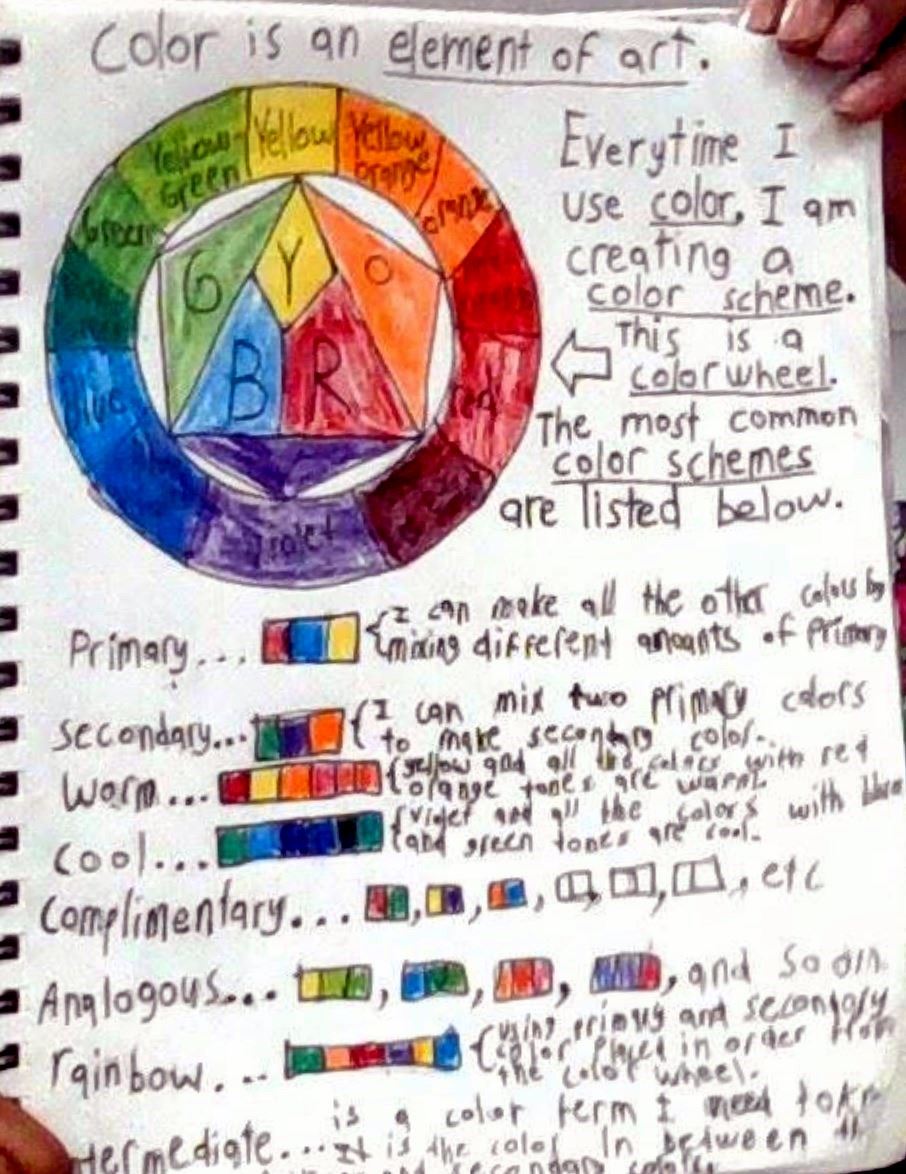 Color is an element of art.
Yellow-
Green
Yellow
Yellow
Orange
Orange
Green
Blue
red
Violet
G
Y
O
B
R
Everytime I
use color, I am
creating a
color scheme.
This is a
color wheel.
The most common
color schemes
are listed below.
Primary... I can make all the other colors by
mixing different amounts of Primary
Secondary... I can mix two primary colors
to make secondary color.
Warm... yellow and all the colors with red
orange tones are warm.
Cool... violet and all the colors with blue
and green tones are cool.
Complimentary... , , , , , , etc
Analogous... , , , , and so on
rainbow... using primary and secondary
color placed in order from
the color wheel.
is a color term I need to
termediate... It is the color In between
and secondary colors.